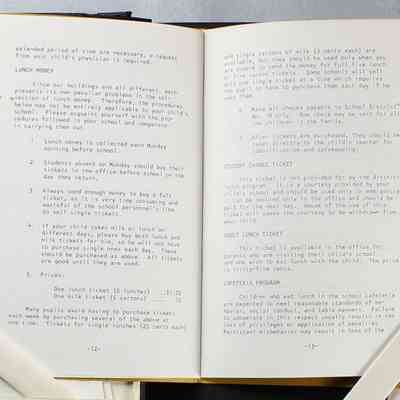 extended period of time are necessary, a request
from your child's physician is required.
LUNCH MONEY
Since our buildings are all different, each
presents its own peculiar problems in the col-
lection of lunch money. Therefore, the procedures
below may not be entirely applicable to your
school. Please acquaint yourself with the pro-
cedures followed in your school and cooperate
in carrying them out.
1. Lunch money is collected each Monday
morning before school.
2. Students absent on Monday should buy their
tickets in the office before school on the
day they return.
3. Always send enough money to buy a full
ticket, as it is very time consuming and
wasteful of the school personnel's time
to sell single tickets.
4. If your child takes milk or lunch on
different days, please buy both lunch and
milk tickets for him, so he will not have
to purchase single ones each day. These
should be purchased as above. All tickets
are good until they are used.
5. Prices:
One lunch ticket (5 lunches)
One milk ticket (5 cartons)
Many pupils would have to purchase tickets
each week by purchasing several of the above at
one time. Tickets for single lunches (25 cents each)
-12-
and single cartons of milk (3 cents each) are
available, but they should be used only when you
are unable to send the money for full five lunch
or five carton tickets. Some schools will sell
only one
the pupil to have to purchase them each day if he
uses them.
6. Make all checks payable to School District
No. 30 only. One check may be sent for all
the children in the family.
7. After tickets are purchased, they should be
sent directly to the child's teacher for
identification and safekeeping.
STUDENT CHARGE TICKET
This ticket is not provided for by the district
lunch program. It is a courtesy provided by your
child's school and should be used only in emergencies.
It can be secured only in the office and should be
paid for the next day. Abuse of the use of this
ticket will cause the courtesy to be withdrawn from
your child.
ADULT LUNCH TICKET
This ticket is available in the office for
parents who are visiting their child's school
and who wish to eat lunch with the child. The price
is thirty-five cents.
CAFETERIA PROGRAM
Children who eat lunch in the school cafeteria
are expected to meet reasonable standards of be-
havior, social conduct, and table manners. Failure
to cooperate in this respect usually results in the
loss of privileges or application of penalties.
Persistent misbehavior may result in loss of the
-13-